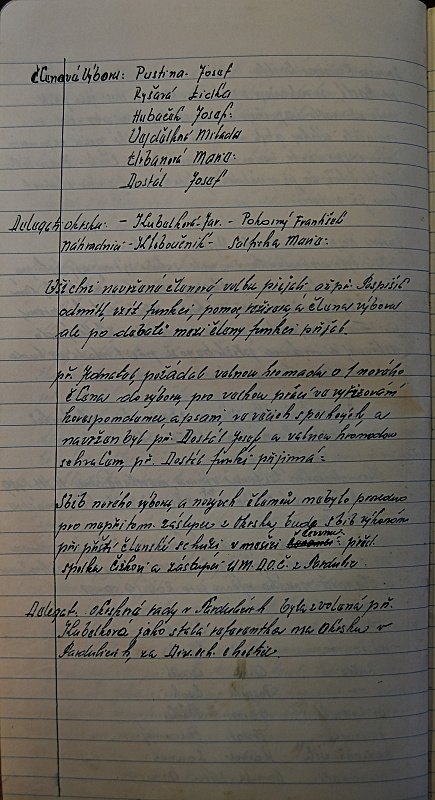 Členová Výboru: Pustina Josef
Ryšavá Lidka
Hubaček Josef.
Vajdušková Milada
Urbanová Marie.
Dostál Josef
Delegat okrsku: - Kubelková Jar. - Pokorný František
náhradník - Kloboučník - Marie.
Všichni navržená členové volbu přijali až př. Pospíšil
odmítl vzít funkci, a člena výboru
ale po debatě mezi členy funkci přijal.
př. Jednatel požádal valnou hromadu o 1 nového
člena do výboru pro velkou práci ve vyřizování
korespondence a psaní, ve věcech spolkových, a
navržen byl př. Dostál Josef, a valnou hromadou
schválen, př. Dostál funkci přijímá.
Slib nového výboru a nových členů nebylo provedeno
pro nepřítom. zástupce z Okrsku, bude slib vykonán
při příští členské schůzi v měsíci červnu: před.
spolku a zástupci z Pardubic.
Delegat. okrskové rady v Pardubicích byla zvolena př.
Kubelková jako stálá referentka na Okrsku v
Pardubicích, za Div. och. v Rosicích.